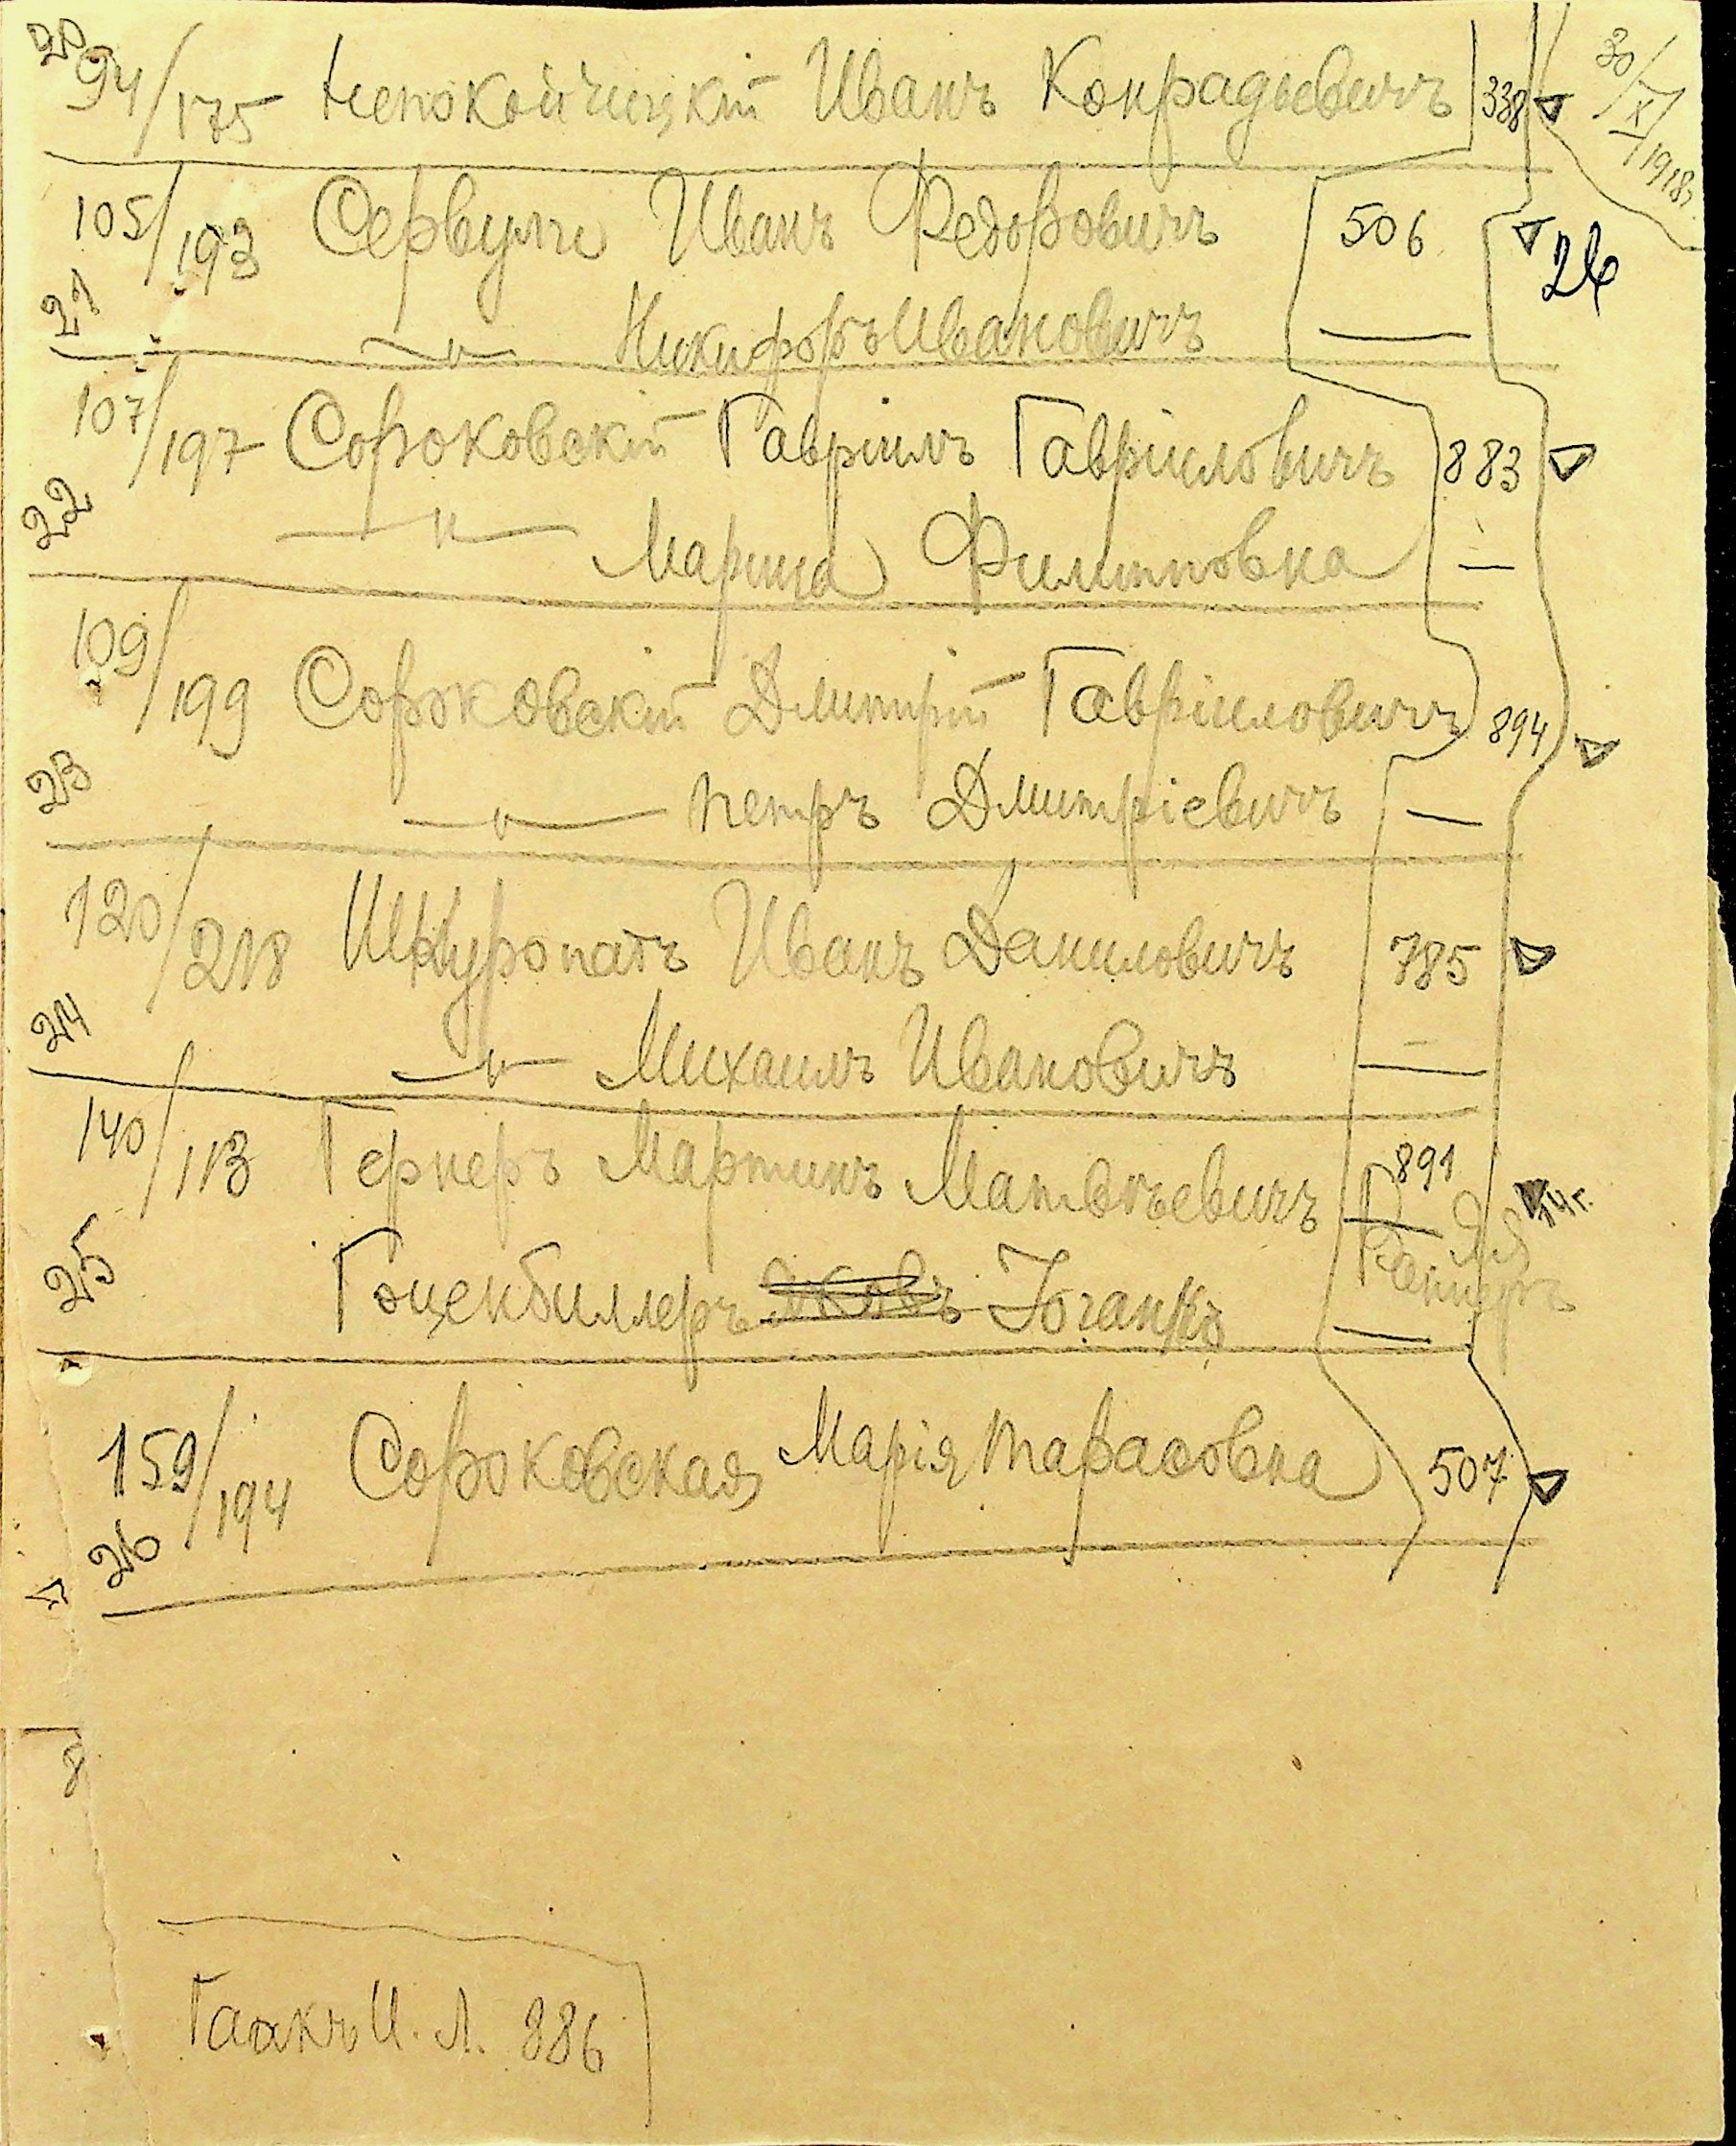 20
94/175 Непокойчицкій Иванъ Конрадьевичъ 338
30/X/1918г.
105/193 Сервули Иванъ Федоровичъ 506
26
21 —"— Никифоръ Ивановичъ —
107/197 Сороковскій Гавріилъ Гавріиловичъ 883
22 —"— Марина Филипповна —
109/199 Сороковскій Дмитрій Гавріиловичъ 894
23 —"— Петръ Дмитріевичъ —
120/218 Шкуропатъ Иванъ Даниловичъ 785
24 —"— Михаилъ Ивановичъ —
140/113 Гернеръ Мартинъ Матвѣевичъ 891
25 Гоценбиллеръ Іоганъ —
159/194 Сороковская Марія Тарасовна 507
26
8
Гаакъ И. Л. 886